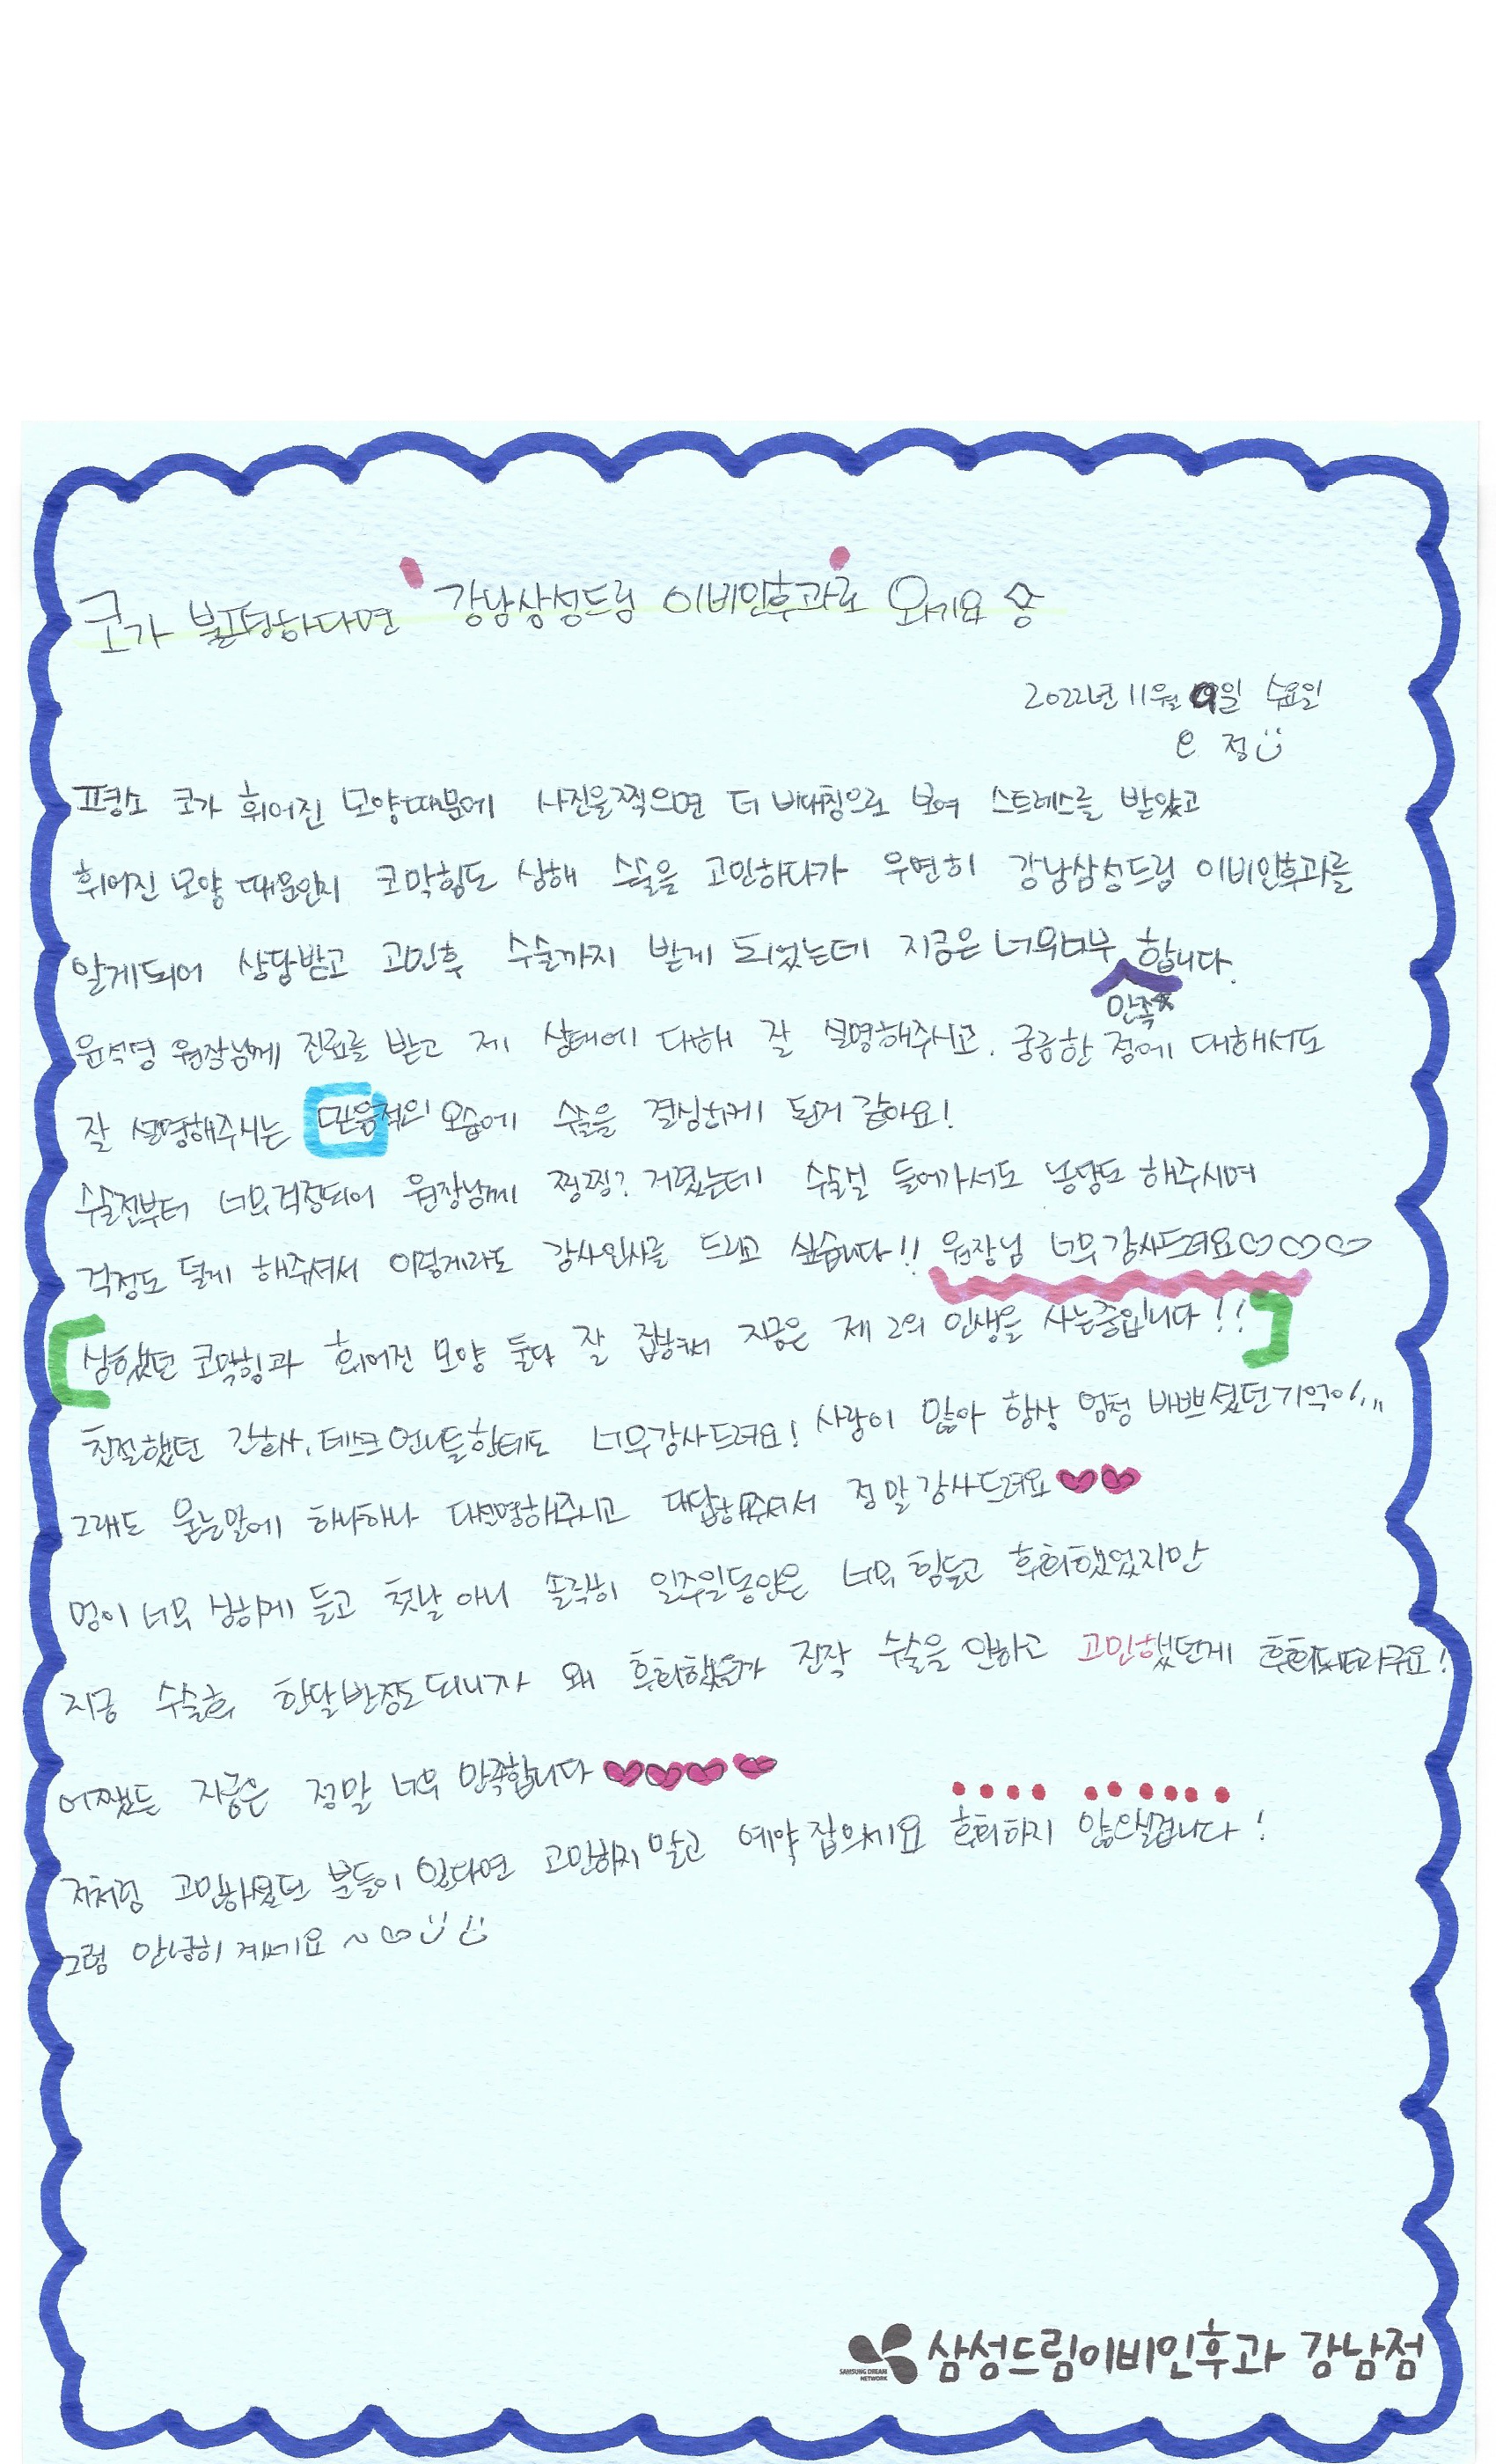 코가 불편하다면 강남삼성드림 이비인후과로 오세요
2022년 11월 9일 수요일
e 정
평소 코가 휘어진 모양때문에 사진을찍으면 더 비대칭으로 보여 스트레스를 받았고
휘어진 모양 때문인지 코막힘도 심해 수술을 고민하다가 우연히 강남삼성드림 이비인후과를
알게되어 상담받고 고민후 수술까지 받게 되었는데 지금은 너무너무 만족 합니다.
윤석영 원장님께 진료를 받고 제 상태에 대해 잘 설명해주시고, 궁금한 점에 대해서도
잘 설명해주시는 믿음적인 모습에 수술을 결심하게 된거 같아요!
수술전부터 너무걱정되어 원장님께 찡찡? 거렸는데 수술실 들어가서도 농담도 해주시며
걱정도 덜게 해주셔서 이렇게라도 감사인사를 드리고 싶습니다!! 원장님 너무감사드려요♡♡♡
[심했던 코막힘과 휘어진 모양 둘다 잘 잡혀서 지금은 제 2의 인생을 사는중입니다!!]
친절했던 간호사, 데스크 언니들한테도 너무감사드려요! 사람이 많아 항상 엄청 바쁘셨던기억이..
그래도 묻는말에 하나하나 다설명해주시고 대답해주셔서 정말감사드려요♥♥
멍이 너무 심하게 들고 첫날 아니 솔직히 일주일동안은 너무 힘들고 후회했었지만
지금 수술후 한달반정도되니까 왜 후회했을까 진작 수술을 안하고 고민했던게 후회되더라구요!
어쨌든 지금은 정말 너무 만족합니다♥♥♥♥
저처럼 고민하셨던 분들이 있다면 고민하지말고 예약잡으세요 후회하지 않으실겁니다!
그럼 안녕히 계세요~♡
SAMSUNG DREAM NETWORK
삼성드림이비인후과 강남점